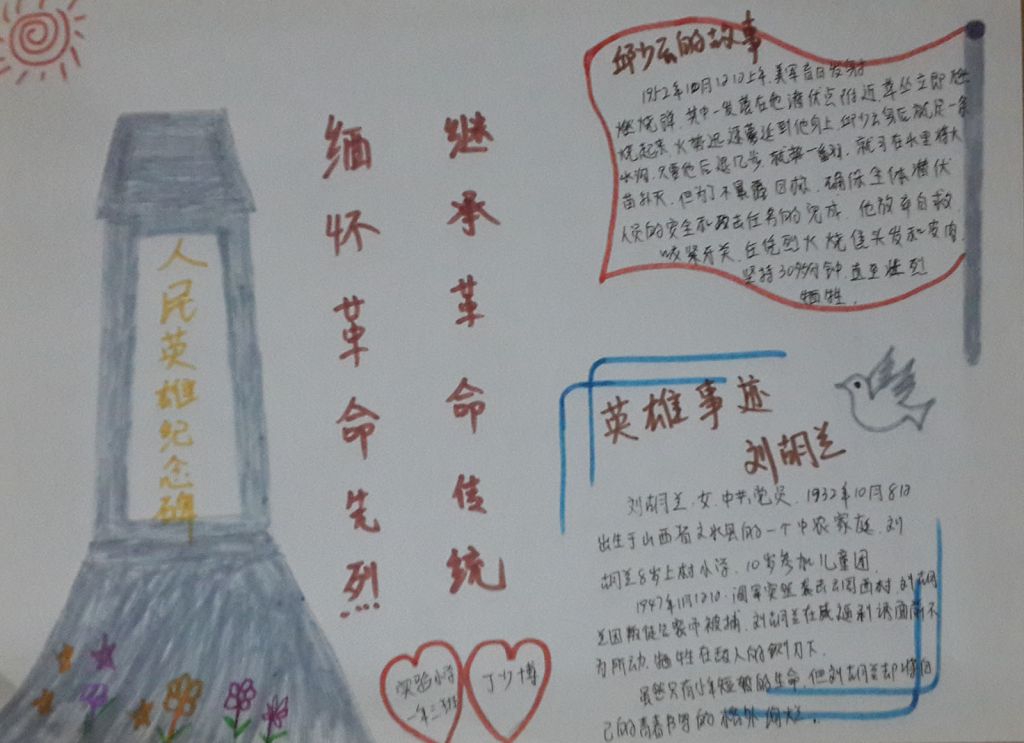 人民英雄纪念碑
缅怀革命先烈
继承革命传统
邱少云的故事
1952年10月12日上午,美军盲目发射
燃烧弹,其中一发落在他潜伏点附近,草丛立即
烧起来,火势迅速蔓延到他身上,邱少云身后就是一条
水沟,只要他后退几步,就势一翻,就可在水里将火
苗扑灭,但为了不暴露目标,确保全体潜伏
人员的安全和攻击任务的完成,他放弃自救
咬紧牙关,任凭烈火烧焦头发和皮肉,
坚持30多分钟,直至壮烈
牺牲.
英雄事迹
刘胡兰
刘胡兰,女,中共党员,1932年10月8日
出生于山西省文水县的一个中农家庭,刘
胡兰8岁上村小学,10岁参加儿童团.
1947年1月12日,阎军突然袭击云周西村,刘胡
兰因叛徒告密而被捕,刘胡兰在威逼利诱面前不
为所动,牺牲在敌人的铡刀下.
虽然只有少年短暂的生命,但刘胡兰却将自
己的青春书写的格外绚烂.
实验小学
一年三班
丁少博